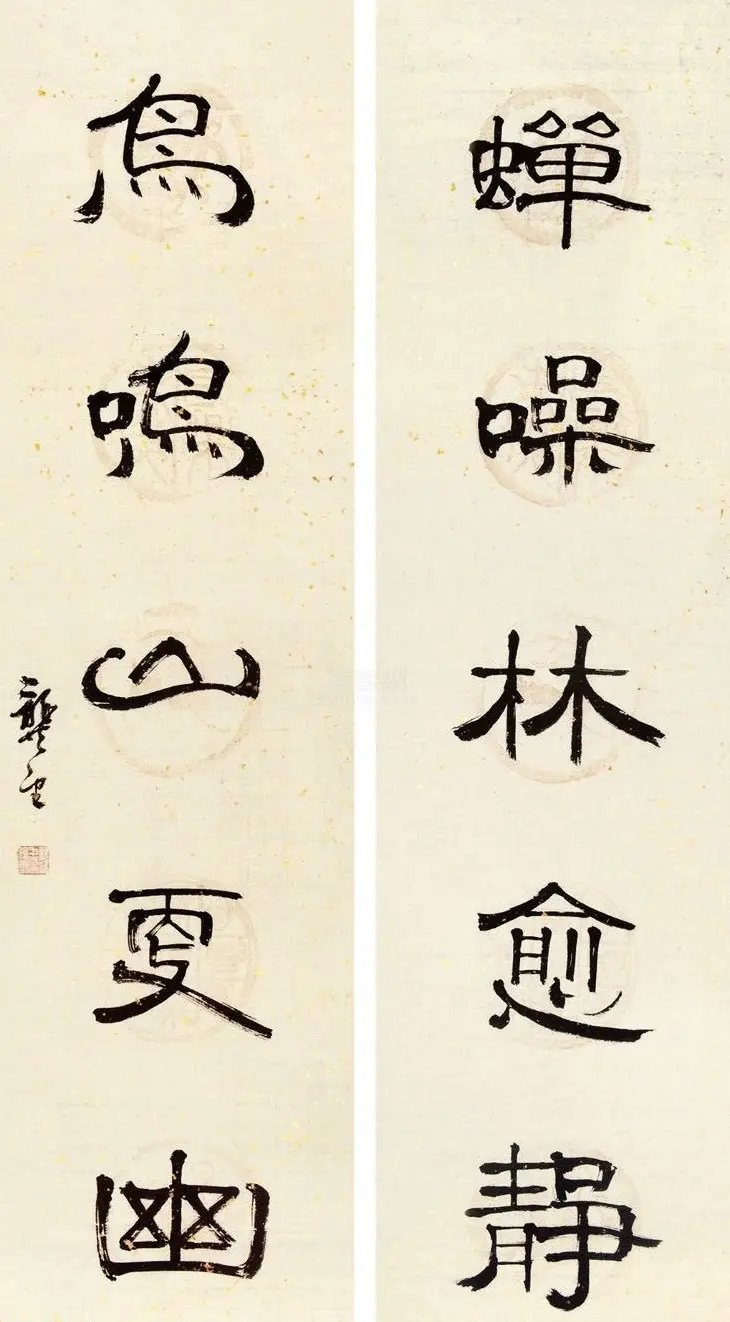 蟬噪林愈靜
鳥鳴山更幽
龔望